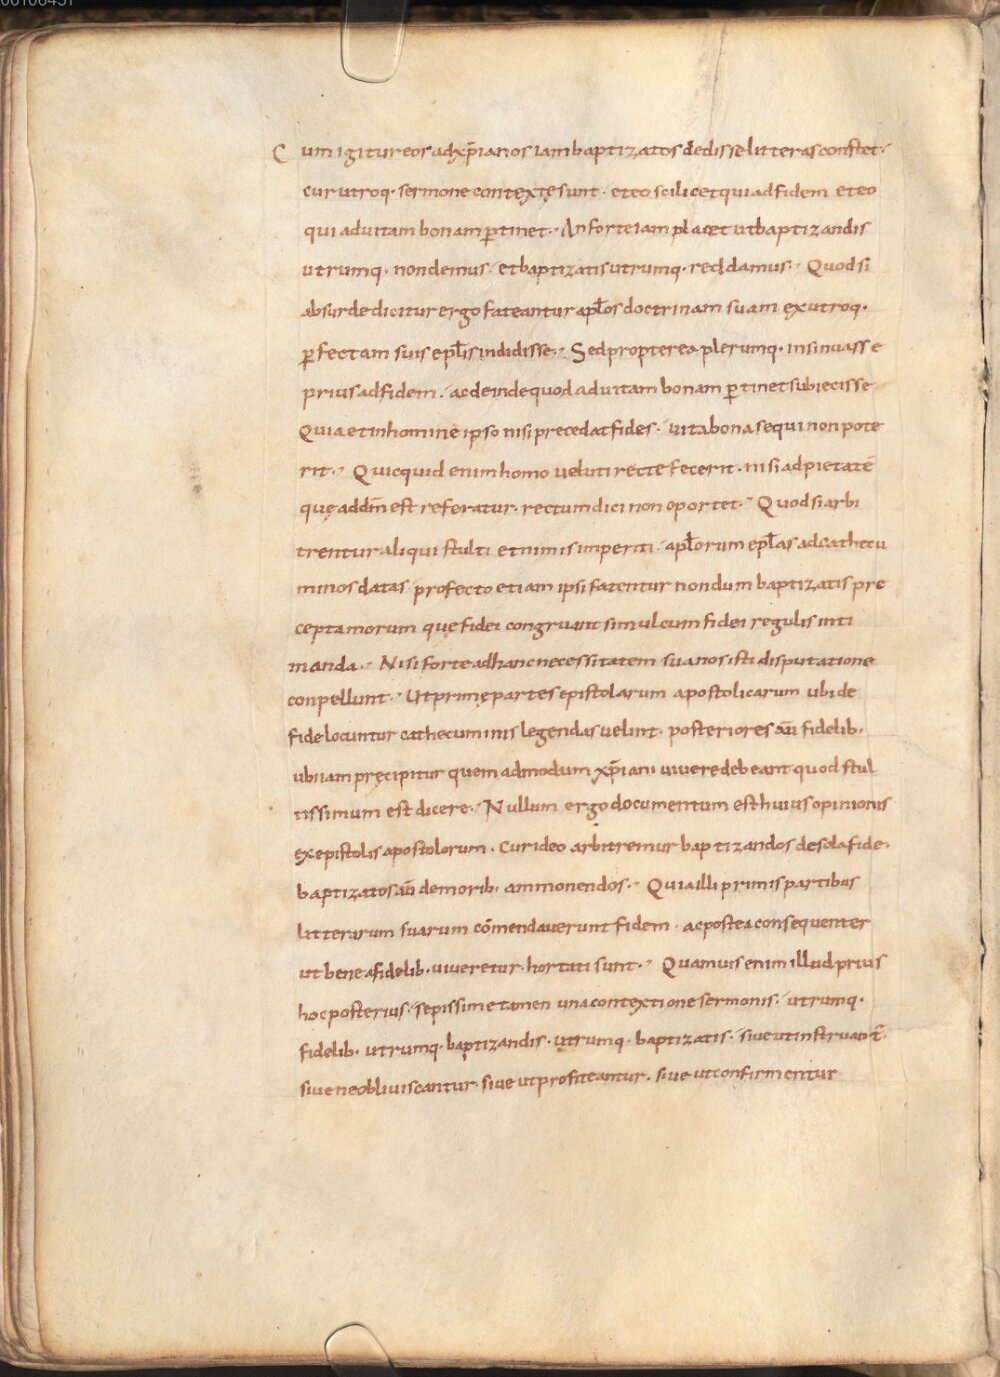 Cum igitur eos ad xp̄ianos iam baptizatos dedisse litteras constet·
cur utroq· sermone contextę sunt· et eo scilicet qui ad fidem et eo
qui ad uitam bonam ꝑtinet·· An forte iam placet ut baptizandis
utrumq· non demus· et baptizatis utrumq· reddamus·· Quod si
absurde dicitur ergo fateantur apłos doctrinam suam ex utroq·
ꝑfectam suis epłis indidisse·· Sed propterea plerumq· insinuasse
prius ad fidem· ac deinde quod ad uitam bonam ꝑtinet subiecisse
Quia et in homine ipso nisi precedat fides· uita bona sequi non pote
rit·· Quicquid enim homo ueluti recte fecerit· nisi ad pietatē
quę ad dm̄ est referatur· rectum dici non oportet·· Quod si arbi
trentur aliqui stulti et nimis imperiti· apłorum epłas ad cathecu
minos datas profecto etiam ipsi fatentur nondum baptizatis pre
cepta morum quę fidei congruant simul cum fidei regulis inti
manda·· Nisi forte ad hanc necessitatem sua nos isti disputatione
conpellunt·· Ut primę partes epistolarum apostolicarum ubi de
fide locuntur cathecuminis legendas uelint· posteriores aū fidelib·
ubi iam pręcipitur quem admodum xp̄iani uiuere debeant quod stul
tissimum est dicere·· Nullum ergo documentum est huius opinionis
ex epistolis apostolorum· Cur ideo arbitremur baptizandos de sola fide·
baptizatos aū de morib· ammonendos·· Quia illi primis partibus
litterarum suarum cōmendauerunt fidem· ac postea consequenter
ut bene a fidelib· uiueretur· hortati sunt·· Quamuis enim illud prius
hoc posterius· sepissime tamen una contextione sermonis· utrumq·
fidelib· utrumq· baptizandis· utrumq· baptizatis· siue ut instruant̄·
siue ne obliuiscantur· siue ut profiteantur· siue ut confirmentur